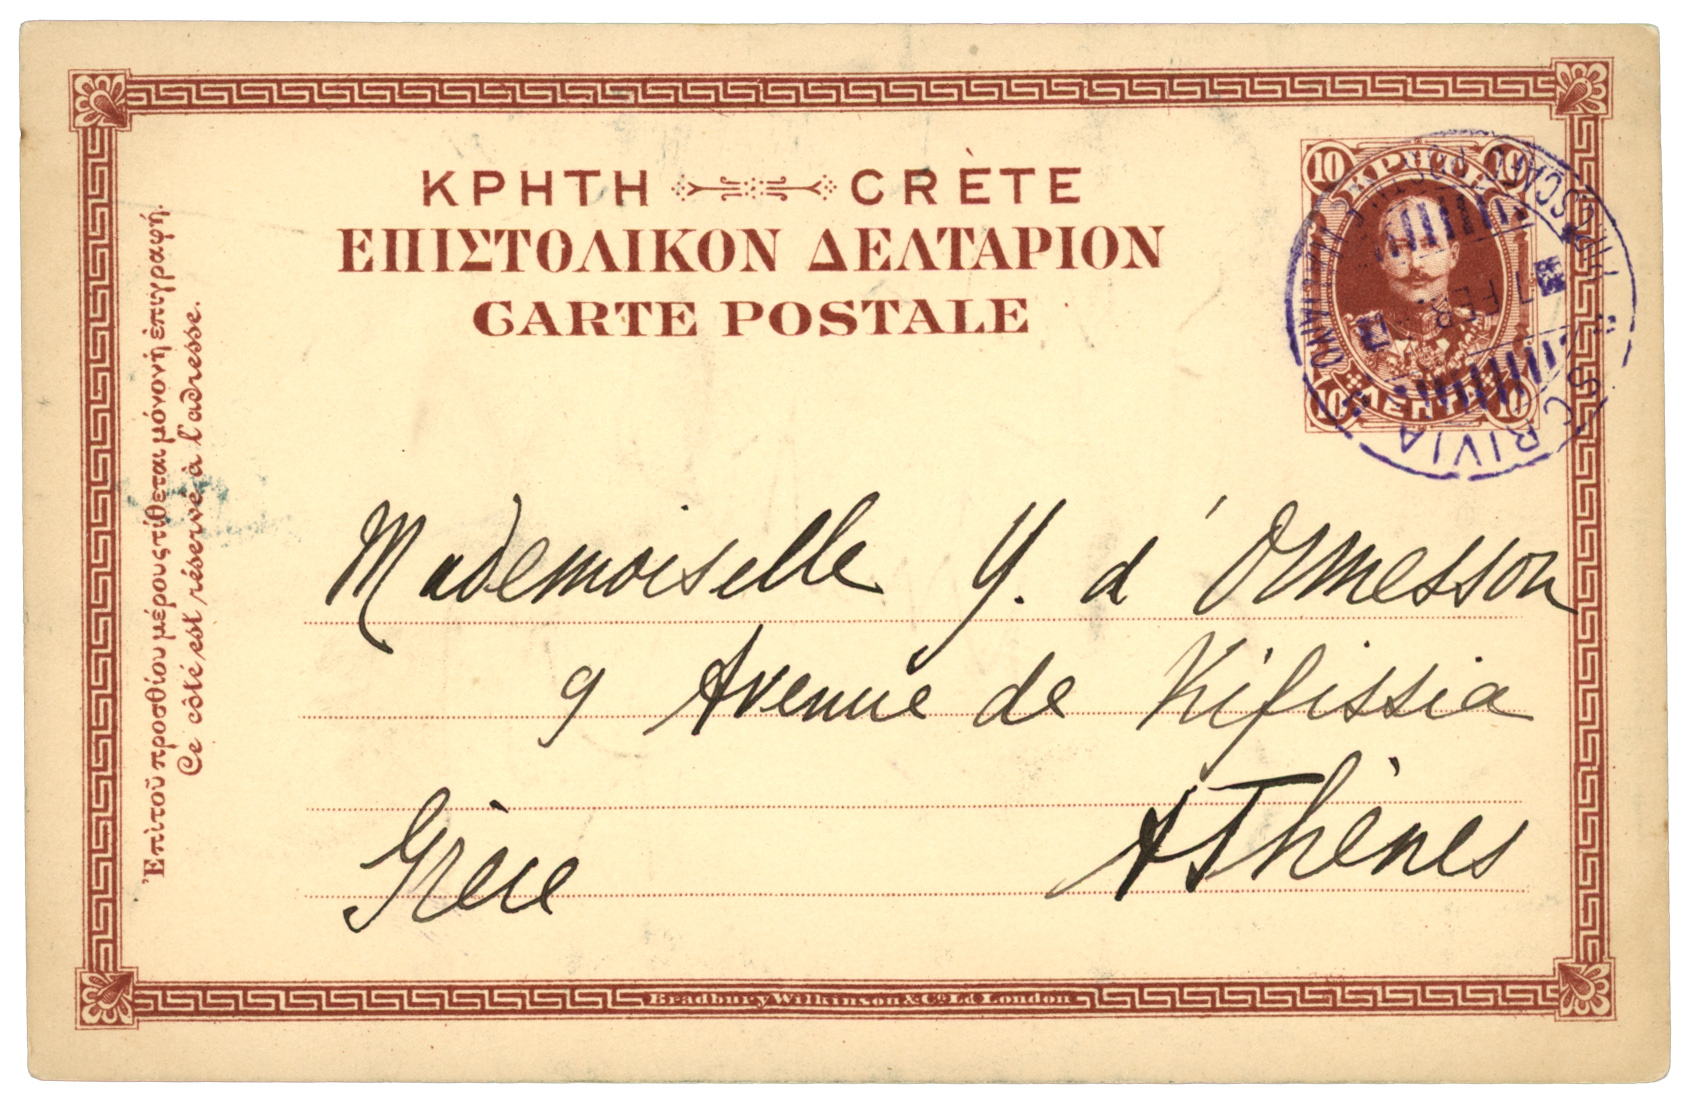 ΚΡΗΤΗ CRÈTE
ΕΠΙΣΤΟΛΙΚΟΝ ΔΕΛΤΑΡΙΟΝ
CARTE POSTALE
Ἐπὶ τοῦ προσθίου μέρους τίθεται μόνον ἡ ἐπιγραφή.
Ce côté est réservé à l'adresse.
10 ΚΡΗΤΗ 10
10 ΛΕΠΤΑ 10
FEB.
Mademoiselle Y. d'Ormesson
9 Avenue de Kifissia
Athènes
Grèce
Bradbury Wilkinson & Co. Ld. London